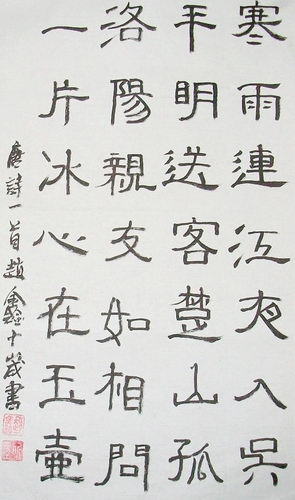 寒雨連江夜入吳
平明送客楚山孤
洛陽親友如相問
一片冰心在玉壺
唐詩一首趙鑫十歲書